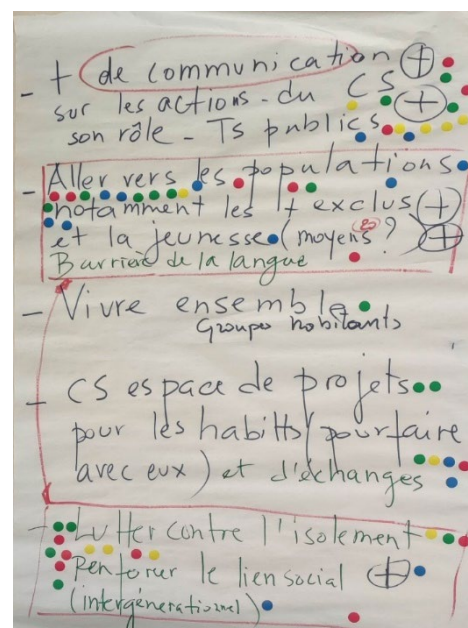 - + de communication +
sur les actions - du CS +
son rôle - Ts publics
- Aller vers les populations
notamment les + exclus +
et la jeunesse (moyens ?) +
Barrière de la langue
- Vivre ensemble
Groupe habitants
- CS espace de projets
pour les habitts (pour faire
avec eux) et d'échanges
- Lutter contre l'isolement
Renforcer le lien social +
(intergénérationnel)